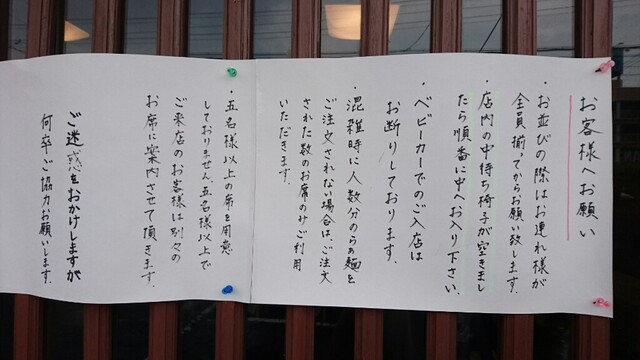 お客様へお願い
・お並びの際はお連れ様が
全員揃ってからお願い致します。
・店内の中待ち椅子が空きまし
たら順番に中へお入り下さい。
・ベビーカーでのご入店は
お断りしております。
・混雑時に人数分のらぁ麺を
ご注文されない場合は、ご注文
された数のお席のみご利用
いただきます。
・五名様以上の席を用意
しておりません。五名様以上で
ご来店のお客様は別々の
お席に案内させて頂きます。
ご迷惑をおかけしますが
何卒ご協力お願いします。